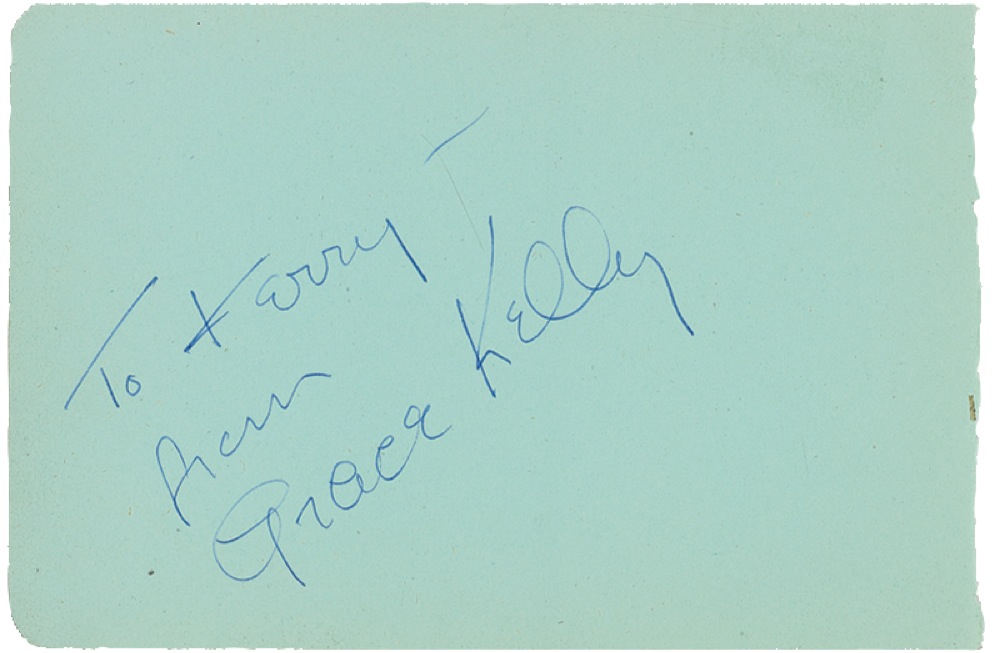 To Kerry
From
Grace Kelly